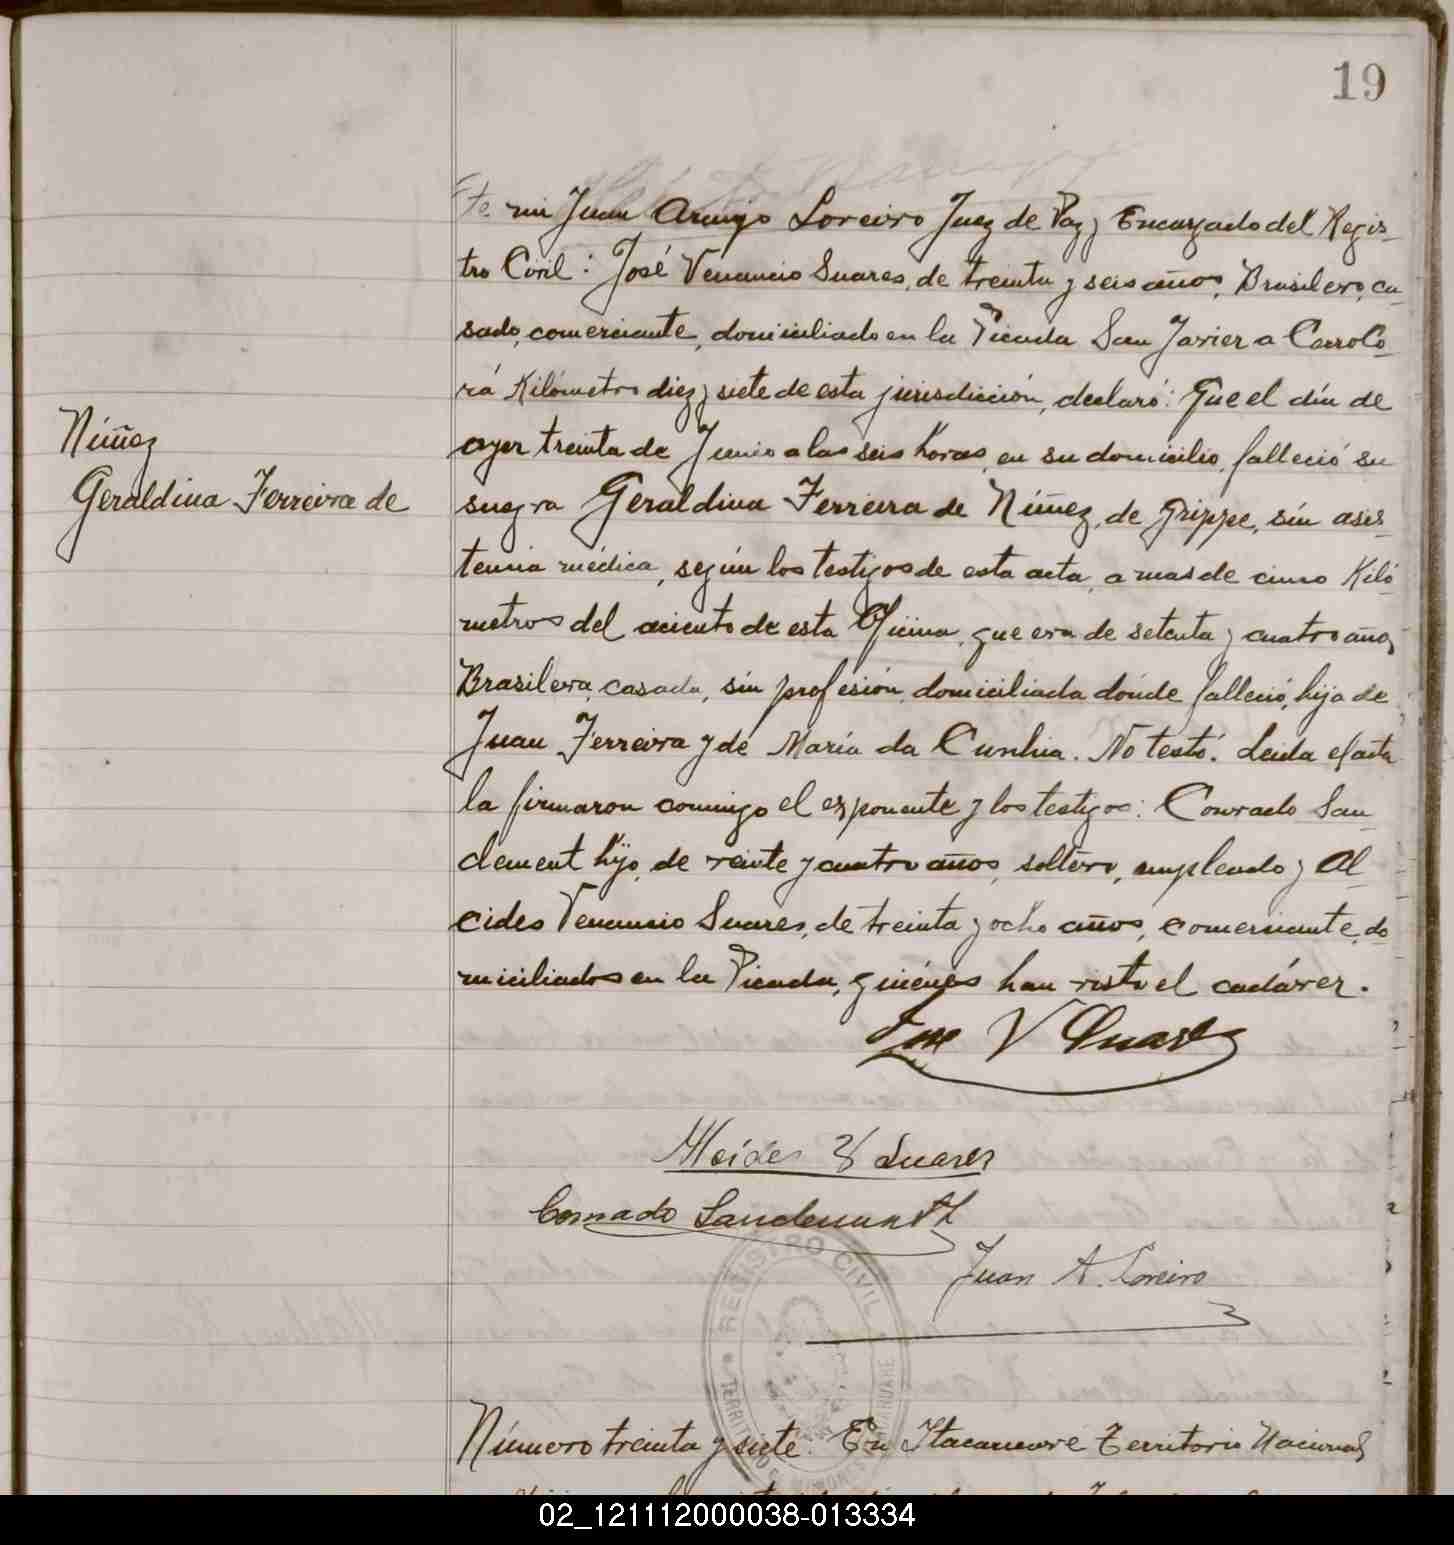 19
te mi Juan Araujo Loreiro Juez de Paz y Encargado del Regis-
tro Civil: José Venancio Suares, de treinta y seis años, Brasilero, ca-
sado, comerciante, domiciliado en la Picada San Javier a Cerro Co-
rá Kilómetro diez y siete de esta jurisdicción, declaró: Que el día de
ayer treinta de Junio a las seis horas, en su domicilio, falleció su
Núñez
Geraldina Ferreira de
suegra Geraldina Ferreira de Núñez, de Grippe, sin asis-
tencia médica, según los testigos de esta acta, a mas de cinco Kiló-
metros del aciento de esta Oficina, que era de setenta y cuatro años,
Brasilera, casada, sin profesión, domiciliada dónde falleció, hija de
Juan Ferreira y de María da Cunhia. No testó. Leida el acta
la firmaron conmigo el exponente y los testigos: Conrado San-
clement hijo, de veinte y cuatro años, soltero, empleado y Al-
cides Venancio Suares, de treinta y ocho años, comerciante, do
miciliados en la Picada, quiénes han visto el cadáver.
Jose V Suares
Alcides V Suares
Conrado Sanclement h
Juan A. Loreiro
REGISTRO CIVIL
TERRITORIO MISIONES
Número treinta y siete. En Itacaruaré Territorio Nacional
02_121112000038-013334